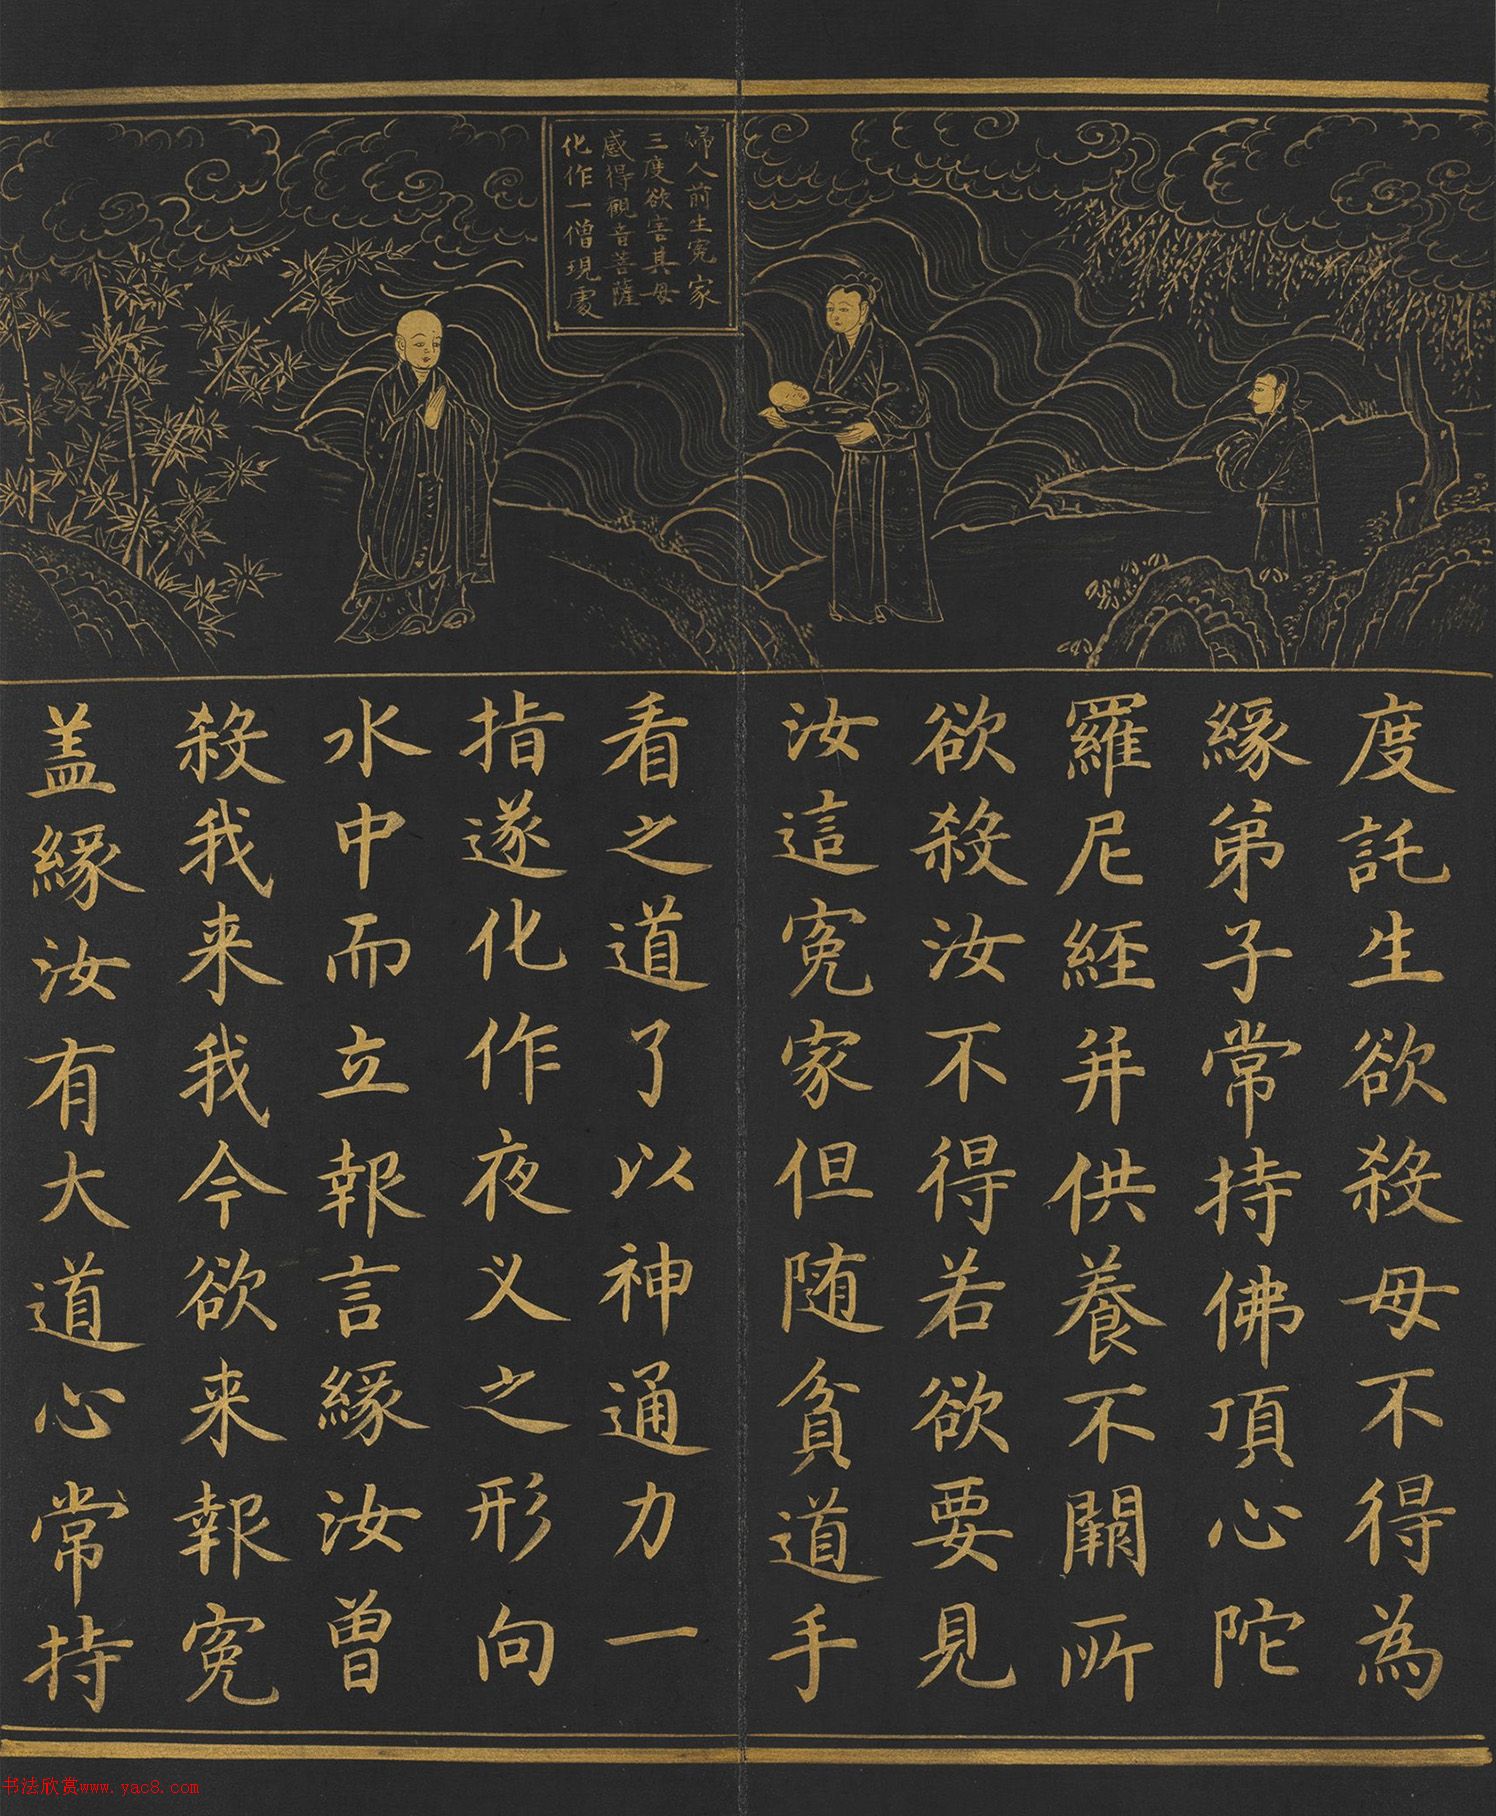 婦人前生寃家
三度欲害其母
感得觀音菩薩
化作一僧現處
度託生欲殺母不得為
緣弟子常持佛頂心陀
羅尼經并供養不闕所
欲殺汝不得若欲要見
汝這寃家但随貧道手
看之道了以神通力一
指遂化作夜义之形向
水中而立報言緣汝曾
殺我来我今欲来報寃
盖緣汝有大道心常持
书法欣赏www.yac8.com